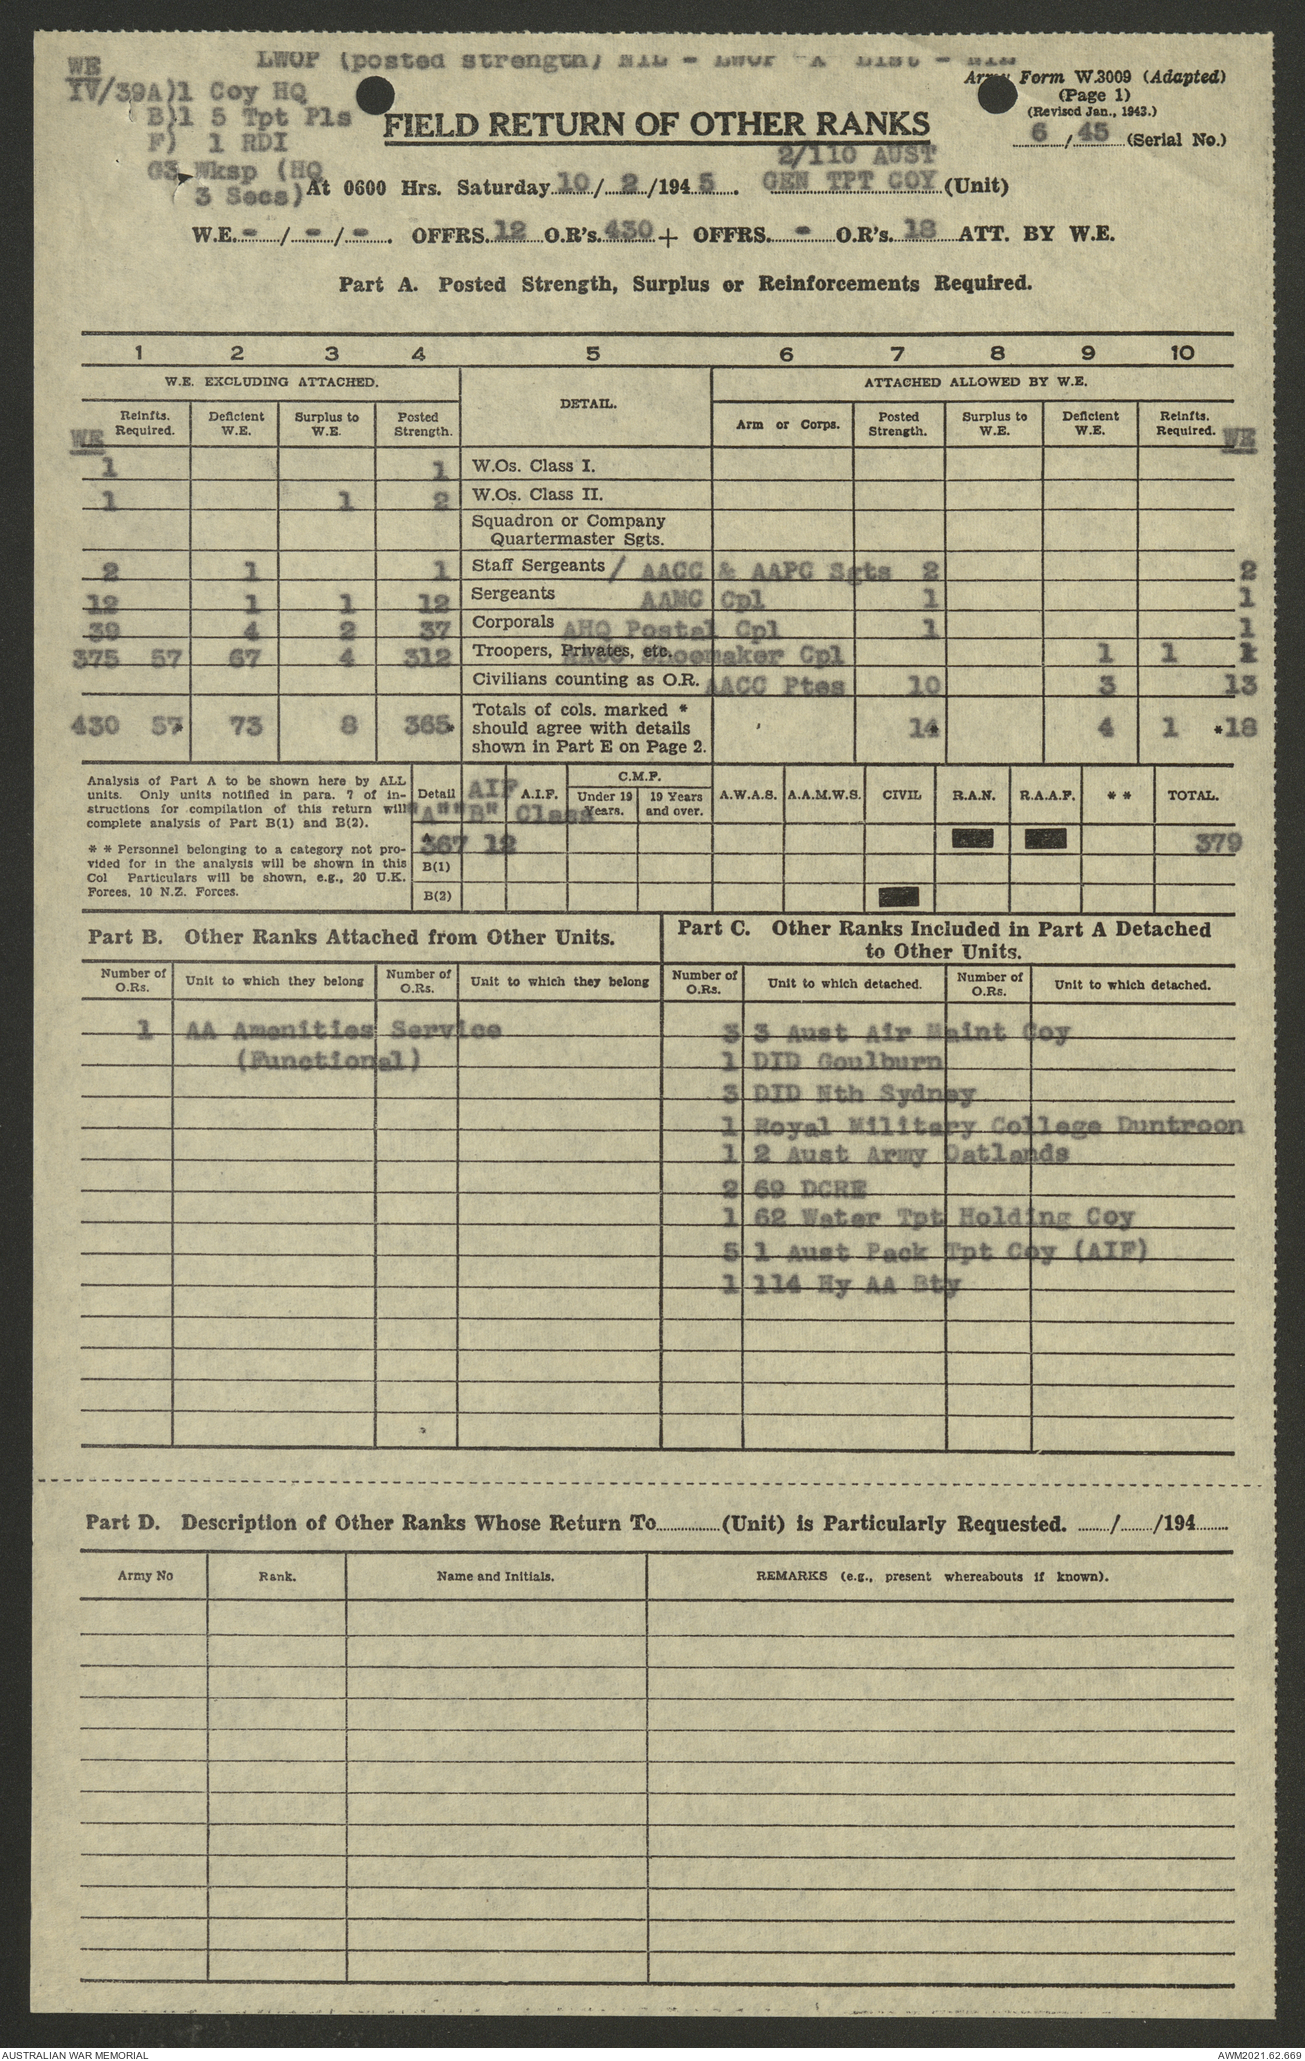 LWOP (posted strength) NIL - LWOP "X" List - NIL
WE
IV/39A)1 Coy HQ
B)1 5 Tpt Pls
F) 1 RDI
G3 Wksp (HQ
3 Secs)
Army Form W.3009 (Adapted)
(Page 1)
(Revised Jan., 1943.)
6/45 (Serial No.)
FIELD RETURN OF OTHER RANKS
2/110 AUST
At 0600 Hrs. Saturday 10/2/1945. GEN TPT COY (Unit)
W.E. - / - / - . OFFRS. 12 O.R's. 430 + OFFRS. - O.R's. 18 ATT. BY W.E.
Part A. Posted Strength, Surplus or Reinforcements Required.
1 2 3 4 5 6 7 8 9 10
W.E. EXCLUDING ATTACHED. DETAIL. ATTACHED ALLOWED BY W.E.
WE Reinfts. Required. Deficient W.E. Surplus to W.E. Posted Strength. Arm or Corps. Posted Strength. Surplus to W.E. Deficient W.E. Reinfts. Required. WE
1 1 W.Os. Class I.
1 1 2 W.Os. Class II.
Squadron or Company
Quartermaster Sgts.
2 1 1 Staff Sergeants / AACC & AAPC Sgts 2 2
12 1 1 12 Sergeants AAMC Cpl 1 1
39 4 2 37 Corporals AHQ Postal Cpl 1 1
375 57 67 4 312 Troopers, Privates, etc. AAOC Shoemaker Cpl 1 1 1
Civilians counting as O.R. AACC Ptes 10 3 13
430 57* 73 8 365* Totals of cols. marked * 14* 4 1 *18
should agree with details
shown in Part E on Page 2.
Analysis of Part A to be shown here by ALL
units. Only units notified in para. 7 of in-
structions for compilation of this return will
complete analysis of Part B(1) and B(2).
* * Personnel belonging to a category not pro-
vided for in the analysis will be shown in this
Col Particulars will be shown, e.g., 20 U.K.
Forces, 10 N.Z. Forces.
Detail AIF A.I.F. C.M.F. Under 19 Years. 19 Years and over. A.W.A.S. A.A.M.W.S. CIVIL R.A.N. R.A.A.F. * * TOTAL.
"A""B" Class
A 367 12 379
B(1)
B(2)
Part B. Other Ranks Attached from Other Units.
Number of O.Rs. Unit to which they belong Number of O.Rs. Unit to which they belong
1 AA Amenities Service
(Functional)
Part C. Other Ranks Included in Part A Detached
to Other Units.
Number of O.Rs. Unit to which detached. Number of O.Rs. Unit to which detached.
3 3 Aust Air Maint Coy
1 DID Goulburn
3 DID Nth Sydney
1 Royal Military College Duntroon
1 2 Aust Army Oatlands
2 69 DCRE
1 62 Water Tpt Holding Coy
5 1 Aust Pack Tpt Coy (AIF)
1 114 Hy AA Bty
Part D. Description of Other Ranks Whose Return To (Unit) is Particularly Requested. / /194
Army No Rank. Name and Initials. REMARKS (e.g., present whereabouts if known).
AUSTRALIAN WAR MEMORIAL
AWM2021.62.669